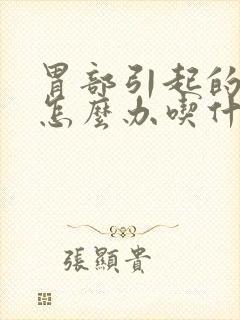 胃部引起的
怎麼办喫什
張顯貴